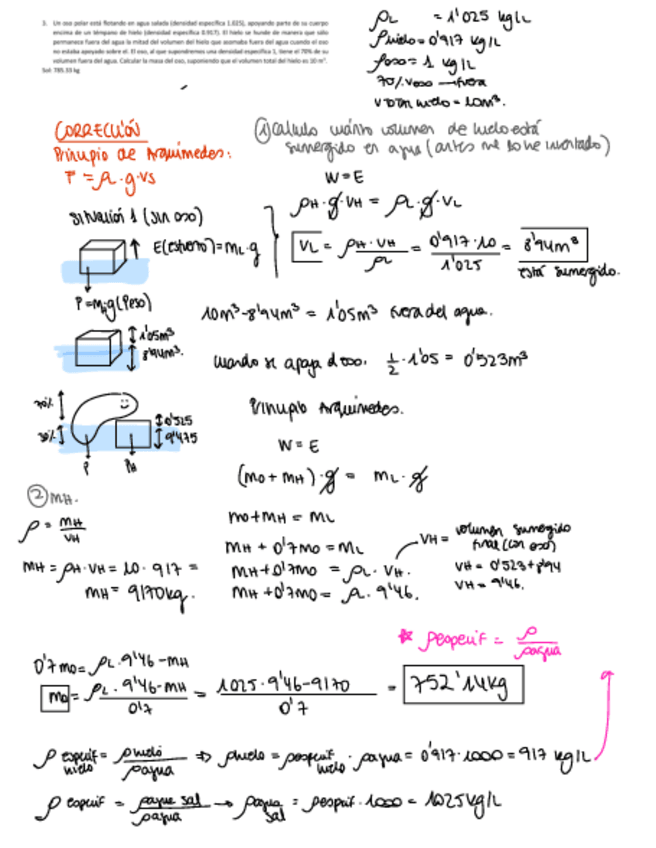 3. Un oso polar está flotando en agua salada (densidad específica 1.025), apoyando parte de su cuerpo
encima de un témpano de hielo (densidad específica 0.917). El hielo se hunde de manera que sólo
permanece fuera del agua la mitad del volumen del hielo que asomaba fuera del agua cuando el oso
no estaba apoyado sobre el. El oso, al que supondremos una densidad específica 1, tiene el 70% de su
volumen fuera del agua. Calcular la masa del oso, suponiendo que el volumen total del hielo es 10 m³.
Sol: 785.33 kg
ρL = 1'025 kg/L
ρhielo = 0'917 kg/L
ρoso = 1 kg/L
70% Voso → fuera
V total hielo = 10m³.
CORRECCIÓN
Principio de Arquímedes:
P = ρL · g · Vs
① Calculo cuánto volumen de hielo está
sumergido en agua (antes me lo he inventado)
W = E
ρH · g · VH = ρL · g · VL
VL = ρH · VH / ρL = 0'917 · 10 / 1'025 = 8'94m³
está sumergido.
Situación 1 (sin oso)
E (esfuerzo) = mL · g
P = mH g (Peso)
10m³ - 8'94m³ = 1'05m³ fuera del agua.
1'05m³
8'94m³.
cuando se apoya el oso. 1/2 · 1'05 = 0'523m³
70%
30%
0'525
9'475
P
PH
Principio Arquímedes.
W = E
(mo + mH) · g = mL · g
② mH.
ρ = mH / VH
mH = ρH · VH = 10 · 917 =
mH = 9170kg.
mo + mH = mL
mH + 0'7mo = mL
mH + 0'7mo = ρL · VH.
mH + 0'7mo = ρL · 9'46.
VH = volumen sumergido
final (con oso)
VH = 0'523 + 8'94
VH = 9'46.
0'7mo = ρL · 9'46 - mH
mo = ρL · 9'46 - mH / 0'7 = 1025 · 9'46 - 9170 / 0'7 = 752'14kg
* ρespecif = ρ / ρagua
ρ especif hielo = ρhielo / ρagua ⇒ ρhielo = ρespecif hielo · ρagua = 0'917 · 1000 = 917 kg/L
ρ especif = ρagua sal / ρagua → ρagua sal = ρespecif · 1000 = 1025kg/L